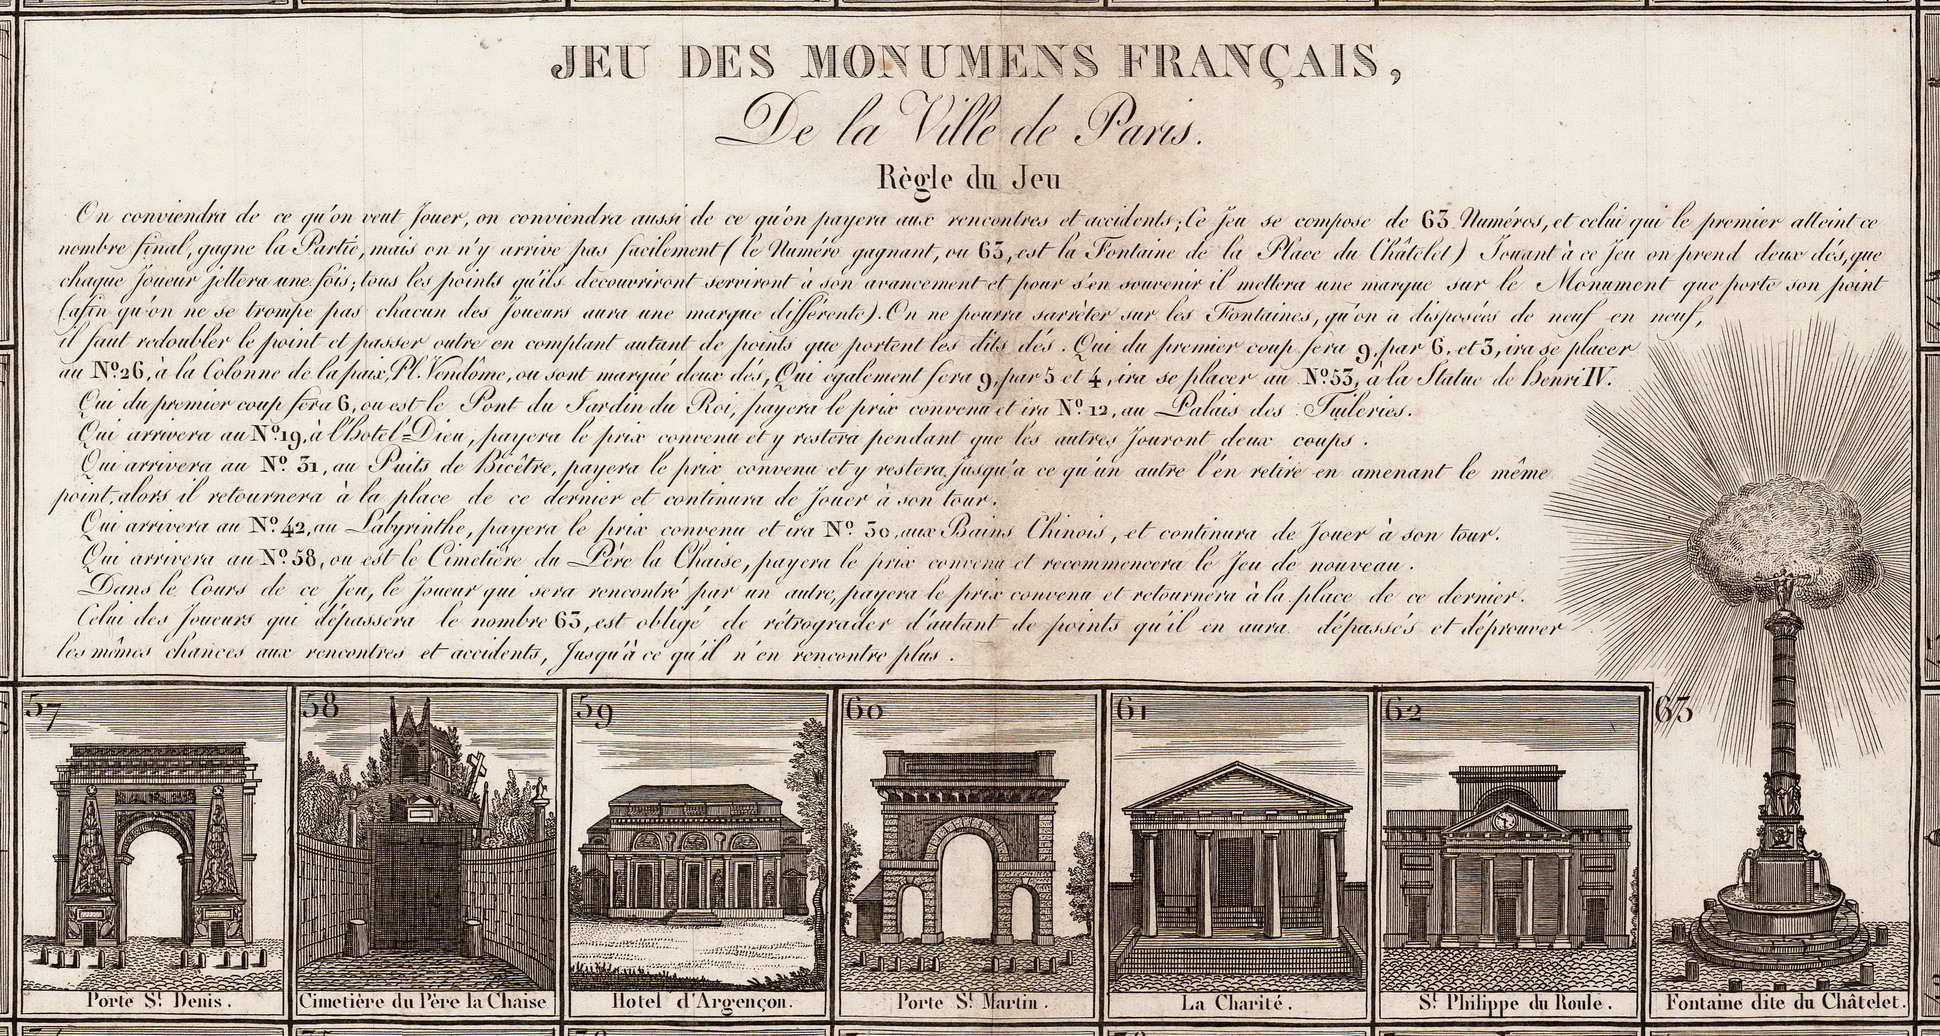 JEU DES MONUMENS FRANÇAIS,
De la Ville de Paris.
Règle du Jeu
On conviendra de ce qu'on veut Jouer, on conviendra aussi de ce qu'on payera aux rencontres et accidents; Ce Jeu se compose de 63 Numéros, et celui qui le premier atteint ce
nombre final, gagne la Partie, mais on n'y arrive pas facilement ( le Numéro gagnant, ou 63, est la Fontaine de la Place du Châtelet ) Jouant à ce Jeu on prend deux dés, que
chaque Joueur jettera une fois; tous les points qu'ils découvriront serviront à son avancement et pour s'en souvenir il mettera une marque sur le Monument que porte son point
(afin qu'on ne se trompe pas chacun des Joueurs aura une marque différente). On ne pourra sarrêter sur les Fontaines, qu'on a disposées de neuf en neuf,
il faut redoubler le point et passer outre en comptant autant de points que portent les dits dés. Qui du premier coup fera 9, par 6, et 3, ira se placer
au Nº 26, à la Colonne de la paix, Pl. Vendôme, ou sont marqué deux dés, Qui également fera 9, par 5 et 4, ira se placer au Nº 53, à la Statue de Henri IV.
Qui du premier coup fera 6, ou est le Pont du Jardin du Roi, payera le prix convenu et ira Nº 12, au Palais des Tuileries.
Qui arrivera au Nº 19, à l'hotel-Dieu, payera le prix convenu et y restera pendant que les autres Jouront deux coups.
Qui arrivera au Nº 31, au Puits de Bicêtre, payera le prix convenu et y restera, jusqu'a ce qu'un autre l'en retire en amenant le même
point, alors il retournera à la place de ce dernier et continura de Jouer à son tour.
Qui arrivera au Nº 42, au Labyrinthe, payera le prix convenu et ira Nº 30, aux Bains Chinois, et continura de Jouer à son tour.
Qui arrivera au Nº 58, ou est le Cimetière du Père la Chaise, payera le prix convenu et recommencera le Jeu de nouveau.
Dans le Cours de ce Jeu, le Joueur qui sera rencontré par un autre, payera le prix convenu et retournera à la place de ce dernier.
Celui des Joueurs qui dépassera le nombre 63, est obligé de rétrograder d'autant de points qu'il en aura dépassés et d'éprouver
les mêmes chances aux rencontres et accidents, Jusqu'à ce qu'il n'en rencontre plus.
57
58
59
60
61
62
63
Porte St. Denis.
Cimetière du Père la Chaise
Hotel d'Argençon.
Porte St. Martin.
La Charité.
St. Philippe du Roule.
Fontaine dite du Châtelet.